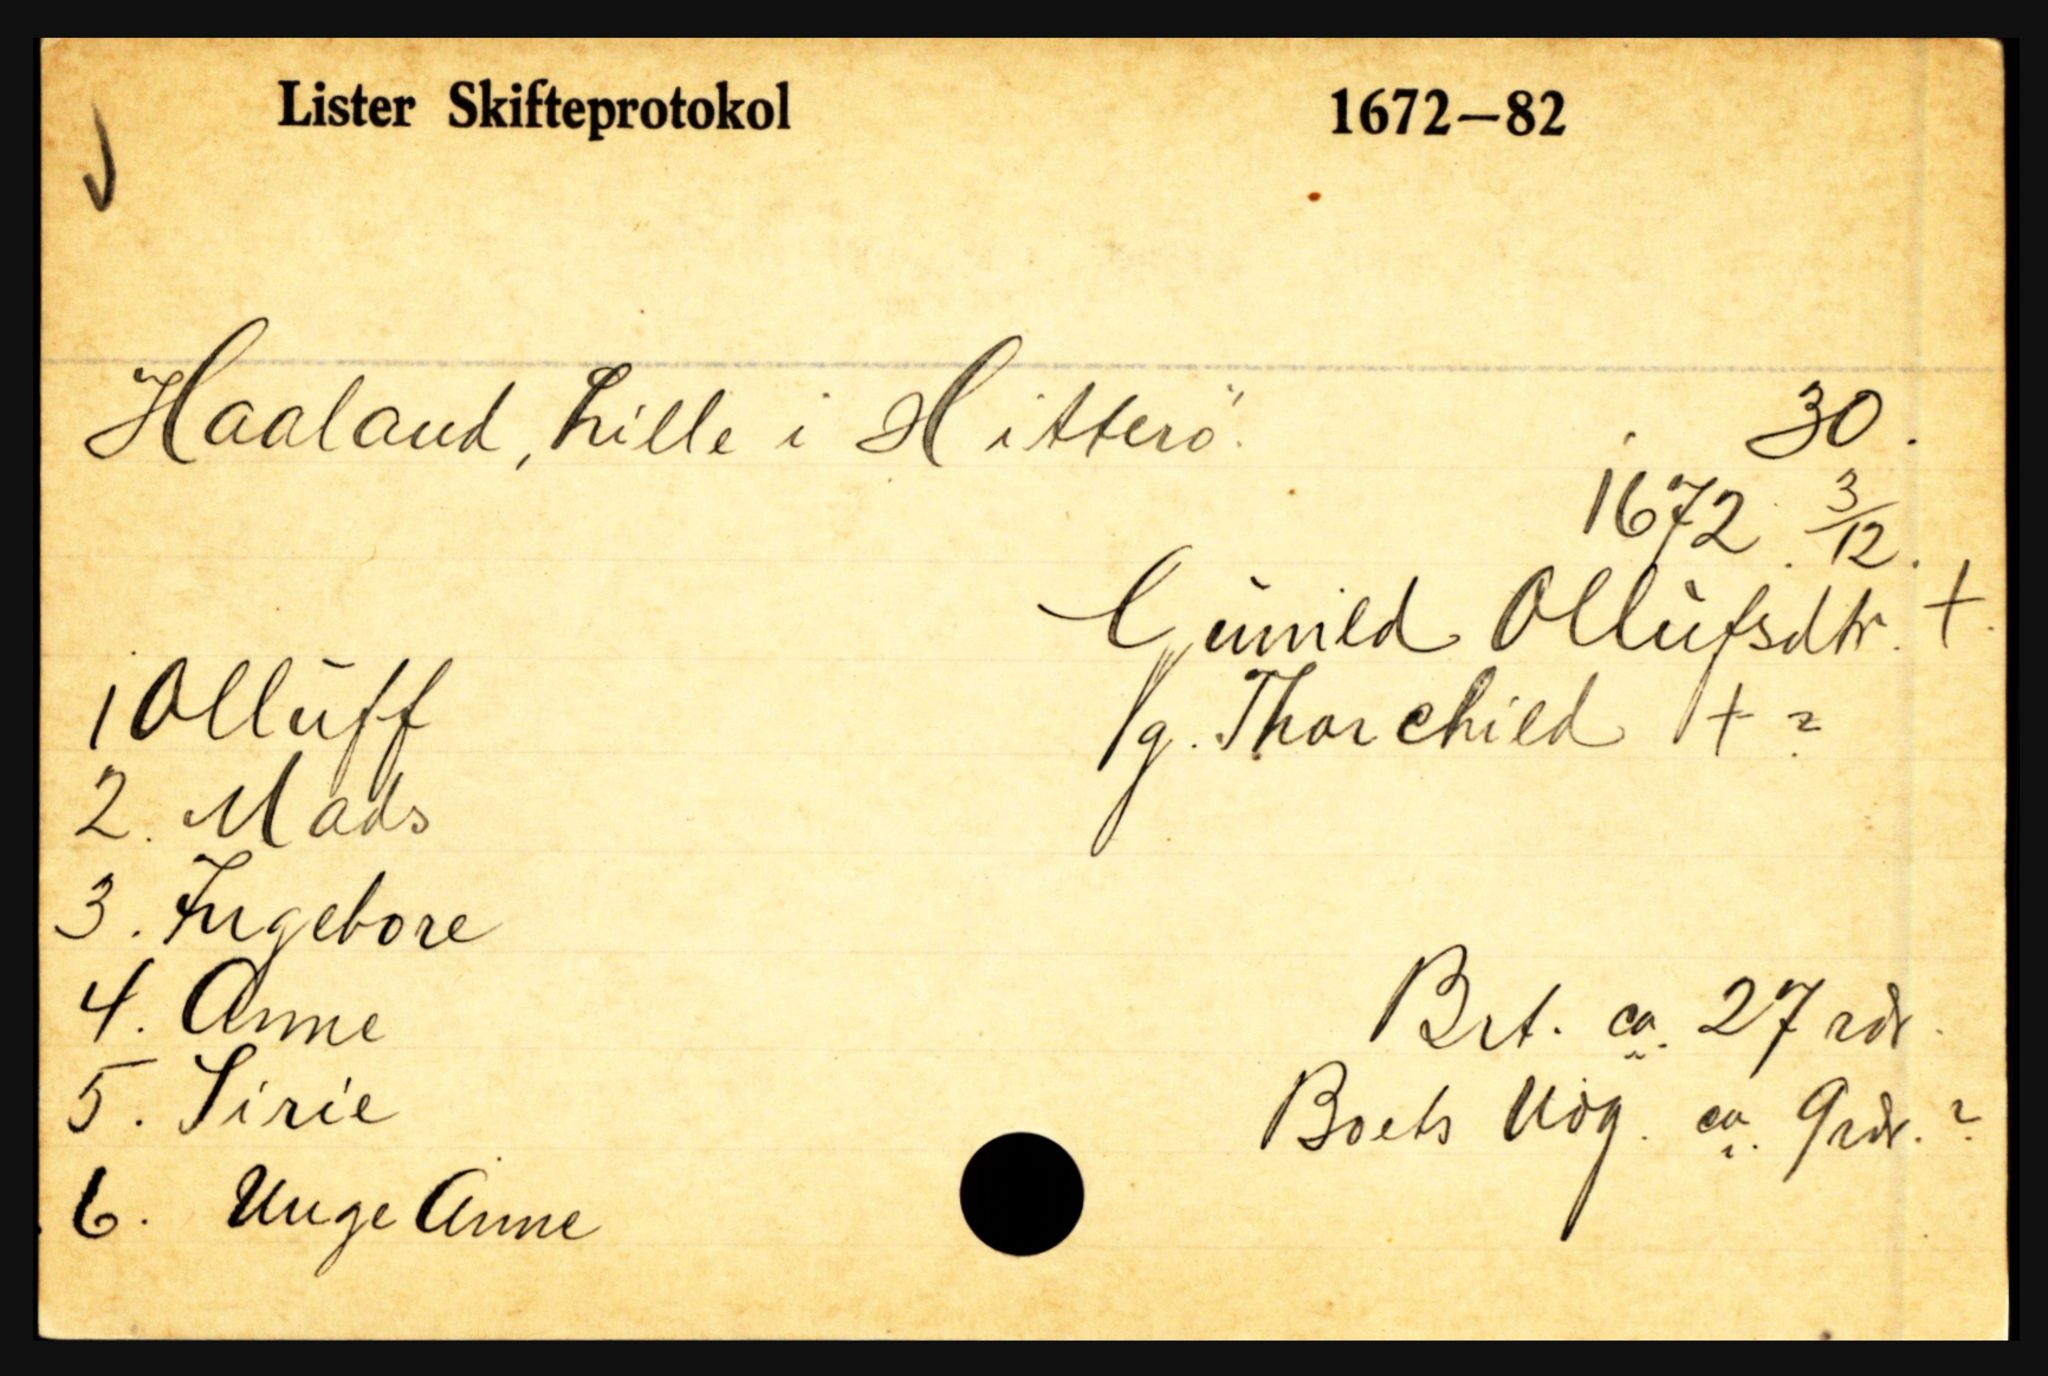 Lister Skifteprotokol 1672—82
Haaland, Lille i Hitterö. 30.
1672. 3/12.
Gunild Ollufsdtr. +.
g. Thorchild + ?
1 Olluff
2. Mads
3. Ingebore
4. Anne
5. Sirie
6. Unge Anne
Brt. ca. 27 rdr.
Boets ca. 9 rdr. ?